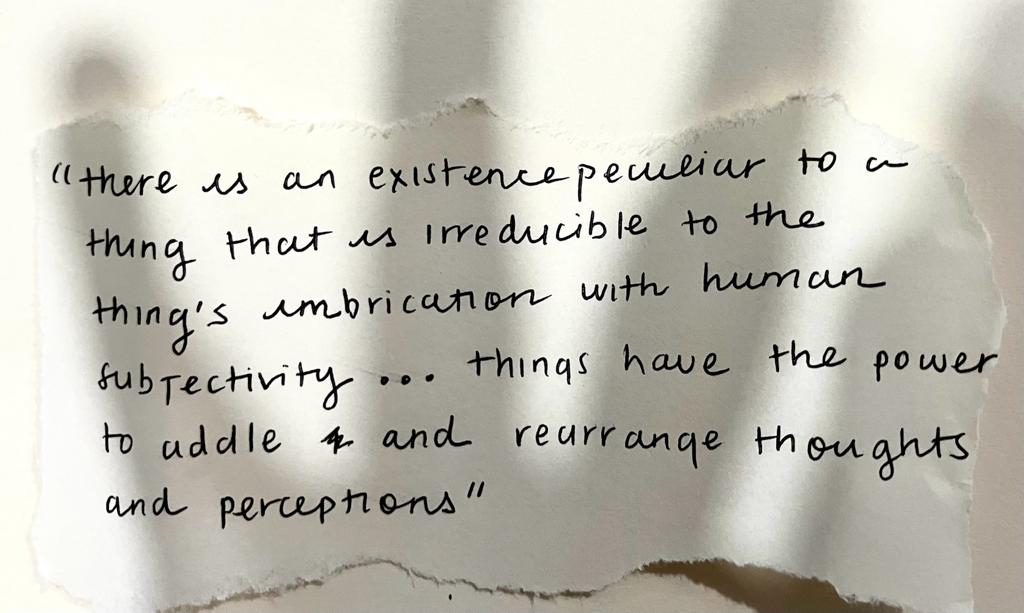 "there is an existence peculiar to a
thing that is irreducible to the
thing's imbrication with human
subjectivity ... things have the power
to addle and rearrange thoughts
and perceptions"